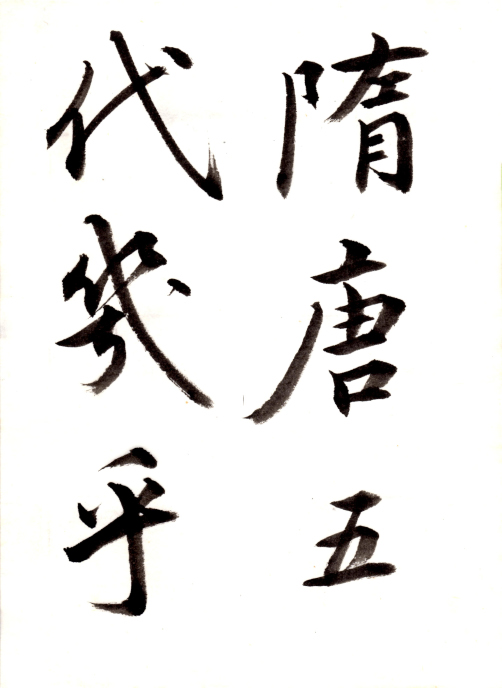 隋唐五
代幾乎